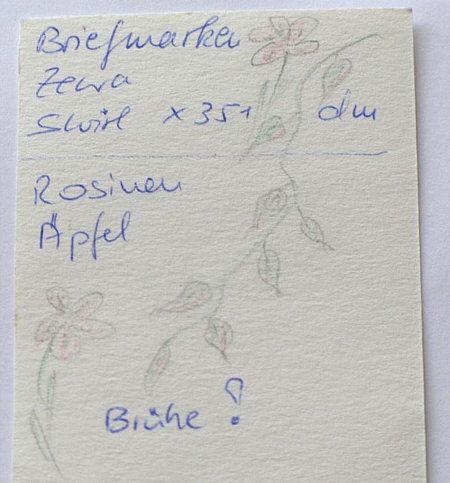 Briefmarken
Zewa
Swirl x 351 dm
Rosinen
Äpfel
Brühe!